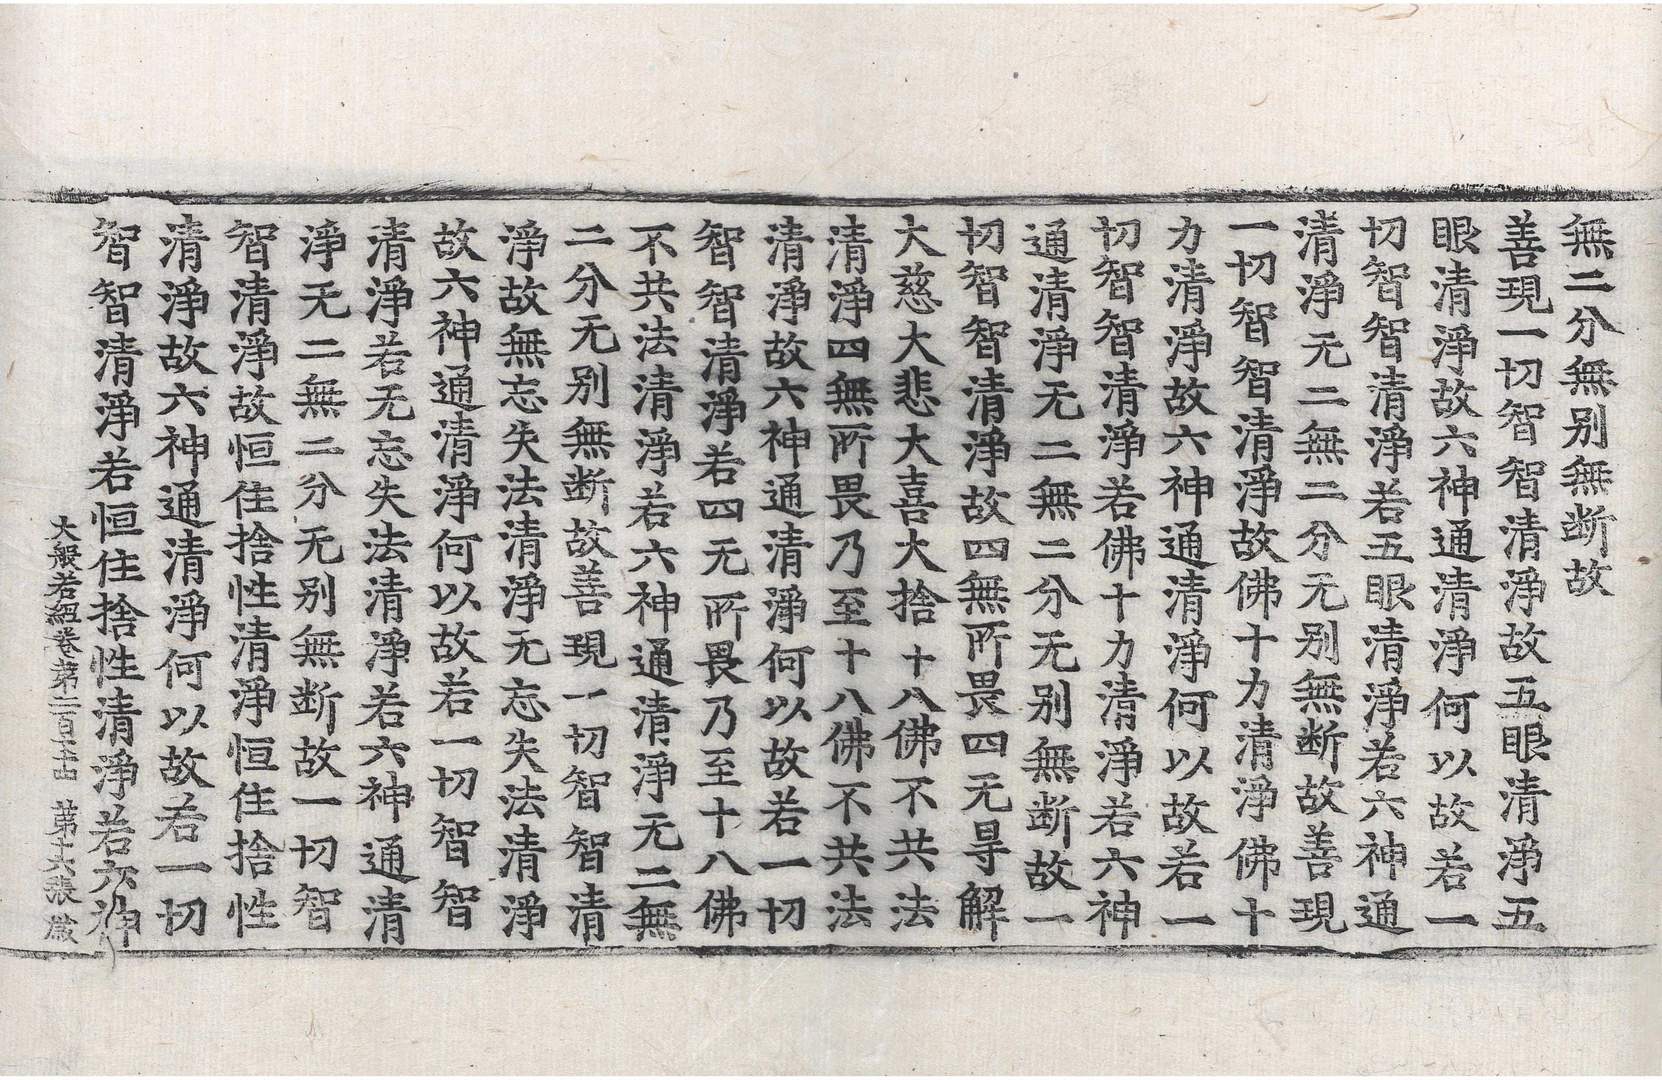 無二分無别無断故
善現一切智智清淨故五眼清淨五
眼清淨故六神通清淨何以故若一
切智智清淨若五眼清淨若六神通
清淨无二無二分无别無断故善現
一切智智清淨故佛十力清淨佛十
力清淨故六神通清淨何以故若一
切智智清淨若佛十力清淨若六神
通清淨无二無二分无别無断故一
切智智清淨故四無所畏四无㝵解
大慈大悲大喜大捨十八佛不共法
清淨四無所畏乃至十八佛不共法
清淨故六神通清淨何以故若一切
智智清淨若四无所畏乃至十八佛
不共法清淨若六神通清淨无二無
二分无别無断故善現一切智智清
淨故無忘失法清淨无忘失法清淨
故六神通清淨何以故若一切智智
清淨若无忘失法清淨若六神通清
淨无二無二分无别無断故一切智
智清淨故恒住捨性清淨恒住捨性
清淨故六神通清淨何以故若一切
智智清淨若恒住捨性清淨若六神
大般若經卷第二百五十四 第十六張